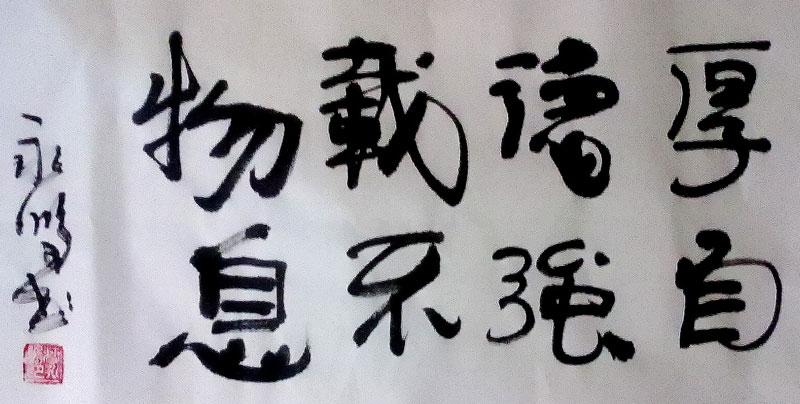 厚德載物
自強不息
永鵬书